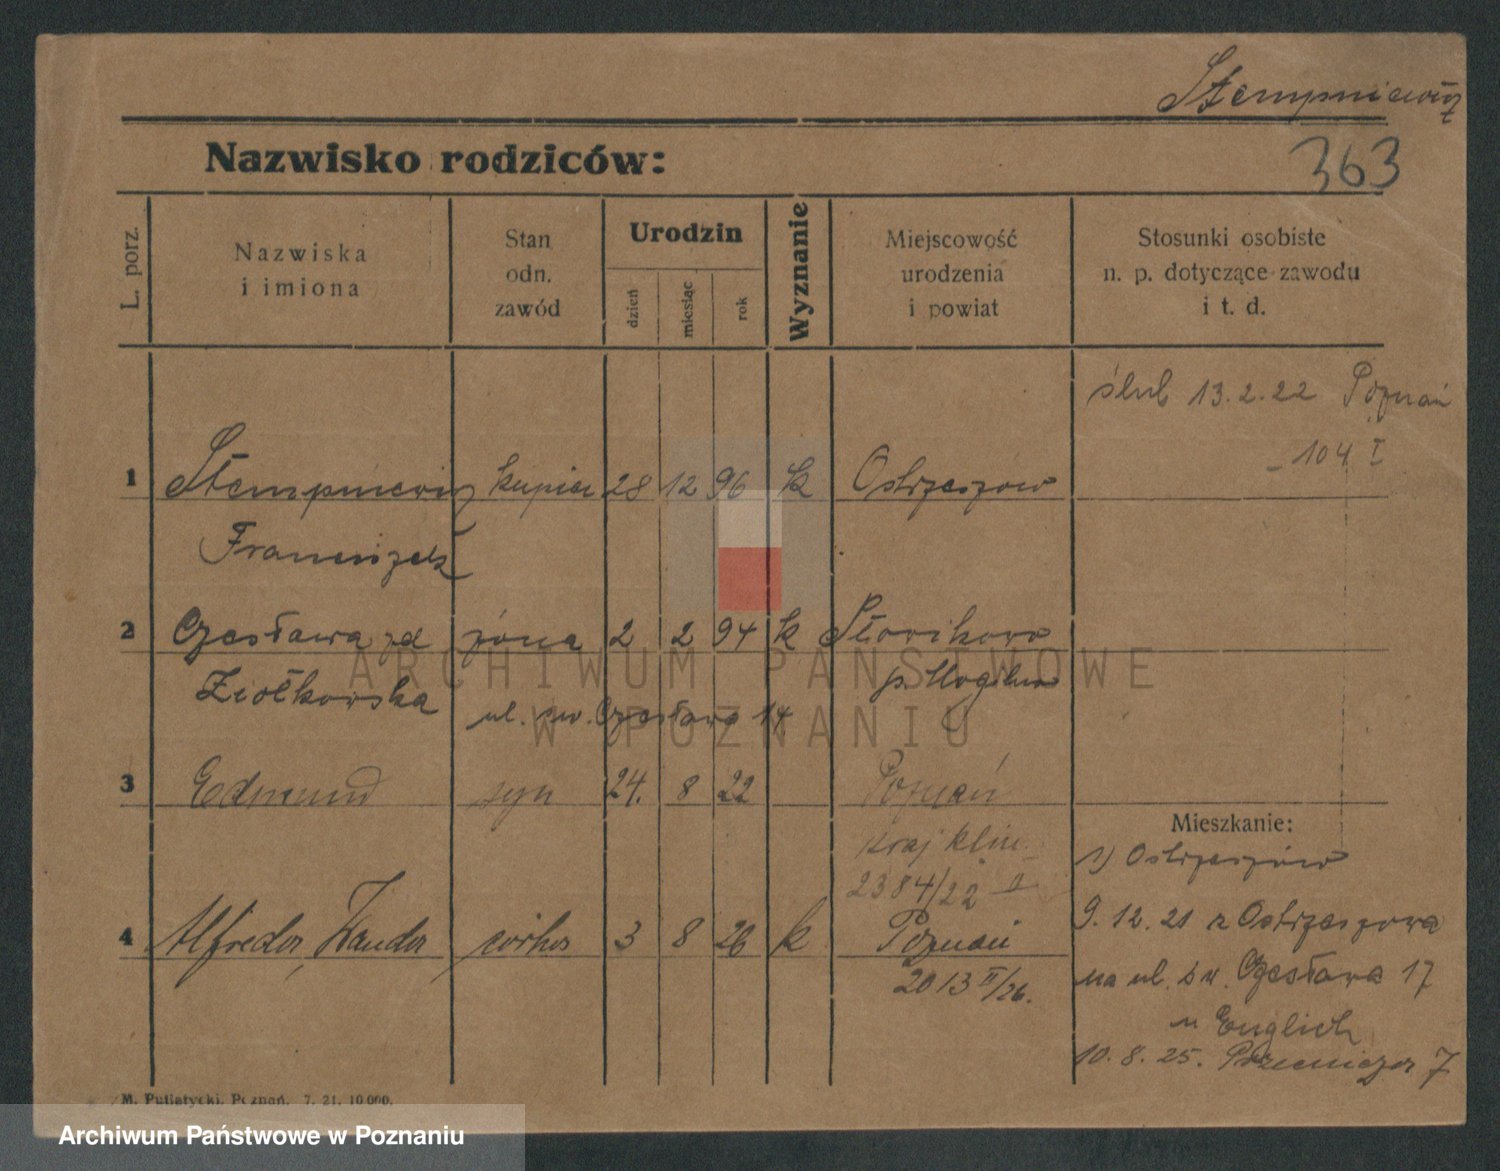 Stempniewicz
Nazwisko rodziców:
363
L. porz.
Nazwiska
i imiona
Stan
odn.
zawód
Urodzin
dzień
miesiąc
rok
Wyznanie
Miejscowość
urodzenia
i powiat
Stosunki osobiste
n. p. dotyczące zawodu
i t. d.
ślub 13.2.22 Poznań
104 I
1 Stempniewicz kupiec 28 12 96 k Ostrzeszów
Franciszek
2 Czesława zd żona 2 2 94 k
Ziółkowska p. Mogilno
ul. św. Czesława 17
3 Edmund syn 24. 8 22 Poznań
Mieszkanie:
kraj klin
1) Ostrzeszów
2384/22 II
9.12.21 z Ostrzeszowa
4 córka 3 8 26 k Poznań
na ul. św. Czesława 17
2013 II/26.
u Englich
10.8.25. 7
M. Putiatycki, Poznań. 7. 21. 10000.
ARCHIWUM PAŃSTWOWE
W POZNANIU
Archiwum Państwowe w Poznaniu